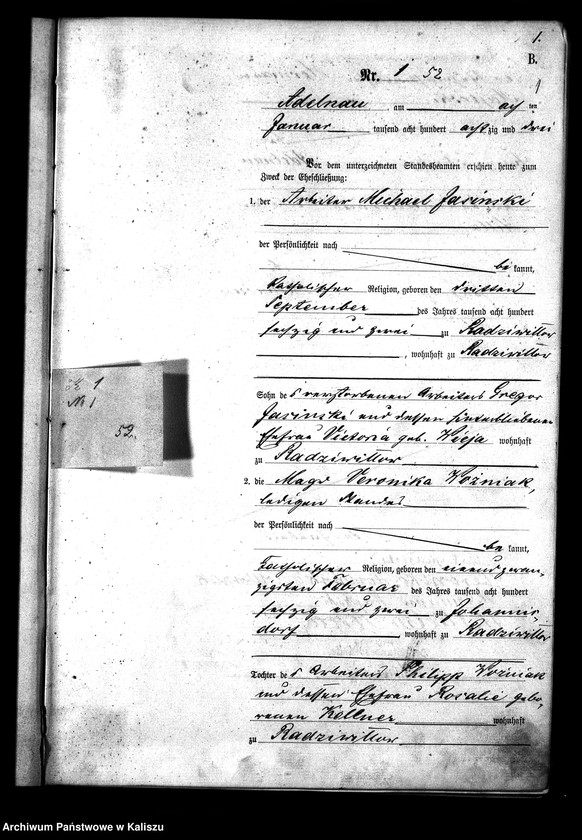 1.
B.
Nr. 1 52
Adelnau am acht ten
Januar tausend acht hundert achtzig und drei
Vor dem unterzeichneten Standesbeamten erschien heute zum
Zweck der Eheschließung:
1. der Arbeiter Michael Jasinski
der Persönlichkeit nach
bekannt,
katholischer Religion, geboren den dritten
September des Jahres tausend acht hundert
sechzig und zwei zu Radziwillow
, wohnhaft zu Radziwillow
№ 1
52.
Sohn des verstorbenen Arbeiters Gregor
Jasinski und dessen hinterbliebenen
Ehefrau Victoria geb. Wieja wohnhaft
zu Radziwillow
2. die Magd Veronika Wozniak,
ledigen Standes
der Persönlichkeit nach
bekannt,
katholischer Religion, geboren den einundzwan-
zigsten Februar des Jahres tausend acht hundert
sechzig und zwei zu Johannis-
dorf, wohnhaft zu Radziwillow
Tochter des Arbeiters Philipp Wozniak
und dessen Ehefrau Rosalie gebo-
renen Kellner wohnhaft
zu Radziwillow
Archiwum Państwowe w Kaliszu